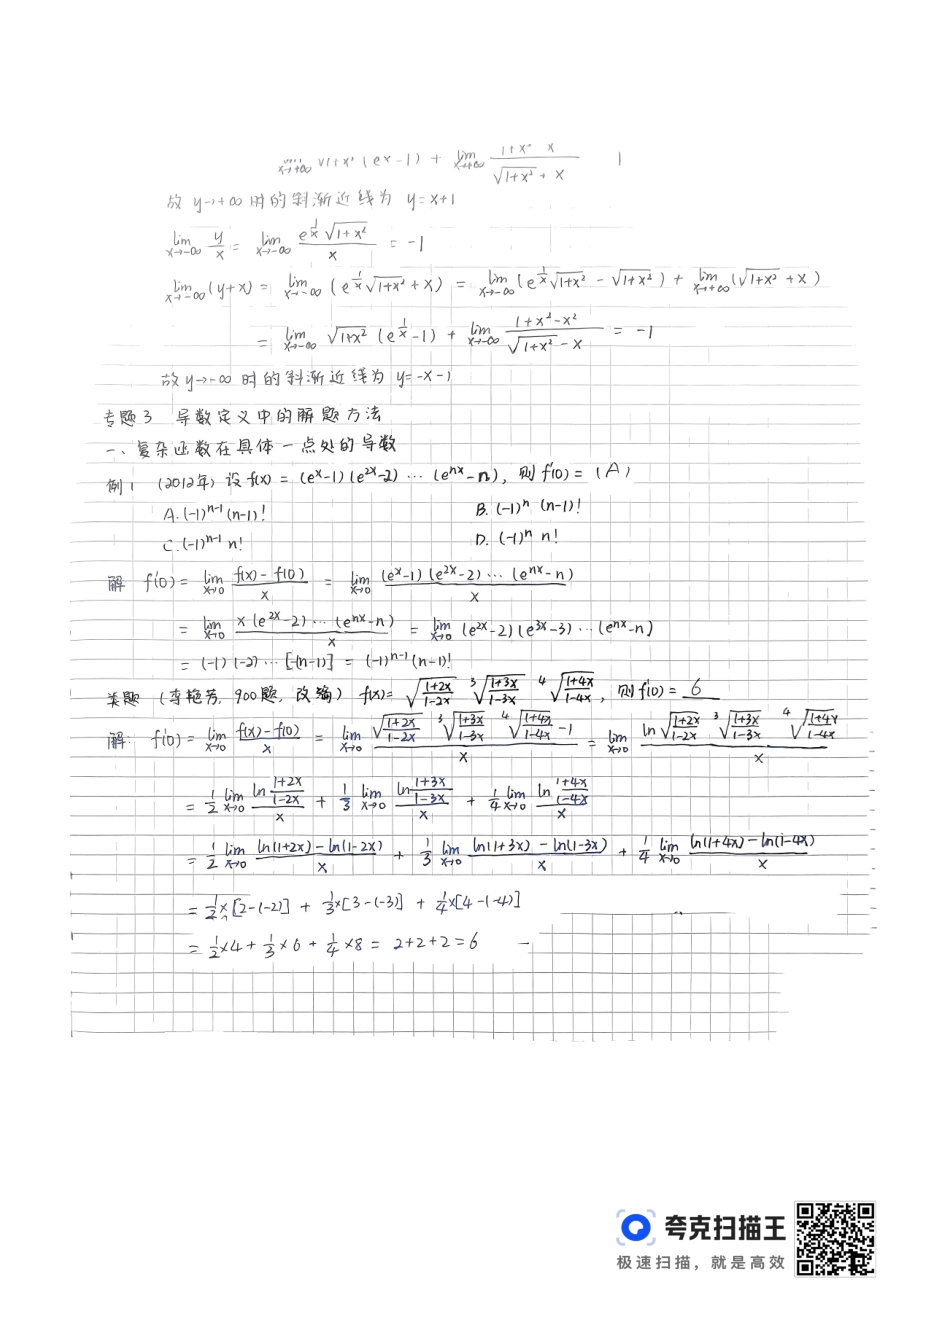 lim x→+∞ √1+x² (eˣ-1) + lim x→+∞ (1+x² x)/(√1+x² + x) 1
故 y→+∞ 时的斜渐近线为 y=x+1
lim x→-∞ y/x = lim x→-∞ (e^(1/x) √1+x²)/x = -1
lim x→-∞ (y+x) = lim x→-∞ (e^(1/x) √1+x² + x) = lim x→-∞ (e^(1/x) √1+x² - √1+x²) + lim x→+∞ (√1+x² + x)
= lim x→-∞ √1+x² (e^(1/x) -1) + lim x→-∞ (1+x²-x²)/(√1+x² - x) = -1
故 y→-∞ 时的斜渐近线为 y=-x-1
专题3 导数定义中的解题方法
一、复杂函数在具体一点处的导数
例1 (2012年) 设 f(x) = (eˣ-1)(e²ˣ-2)…(eⁿˣ-n), 则 f'(0) = (A)
A. (-1)ⁿ⁻¹ (n-1)! B. (-1)ⁿ (n-1)!
C. (-1)ⁿ⁻¹ n! D. (-1)ⁿ n!
解 f'(0) = lim x→0 (f(x)-f(0))/x = lim x→0 ((eˣ-1)(e²ˣ-2)…(eⁿˣ-n))/x
= lim x→0 (x(e²ˣ-2)…(eⁿˣ-n))/x = lim x→0 (e²ˣ-2)(e³ˣ-3)…(eⁿˣ-n)
= (-1)(-2)…[-(n-1)] = (-1)ⁿ⁻¹ (n-1)!
类题 (李艳芳, 900题, 改编) f(x)= √((1+2x)/(1-2x)) ³√((1+3x)/(1-3x)) ⁴√((1+4x)/(1-4x)), 则 f'(0) = 6
解: f'(0) = lim x→0 (f(x)-f(0))/x = lim x→0 (√((1+2x)/(1-2x)) ³√((1+3x)/(1-3x)) ⁴√((1+4x)/(1-4x)) -1)/x = lim x→0 (ln √((1+2x)/(1-2x)) ³√((1+3x)/(1-3x)) ⁴√((1+4x)/(1-4x)))/x
= 1/2 lim x→0 (ln (1+2x)/(1-2x))/x + 1/3 lim x→0 (ln (1+3x)/(1-3x))/x + 1/4 lim x→0 (ln (1+4x)/(1-4x))/x
= 1/2 lim x→0 (ln(1+2x)-ln(1-2x))/x + 1/3 lim x→0 (ln(1+3x)-ln(1-3x))/x + 1/4 lim x→0 (ln(1+4x)-ln(1-4x))/x
= 1/2×[2-(-2)] + 1/3×[3-(-3)] + 1/4×[4-(-4)]
= 1/2×4 + 1/3×6 + 1/4×8 = 2+2+2=6
夸克扫描王
极速扫描，就是高效